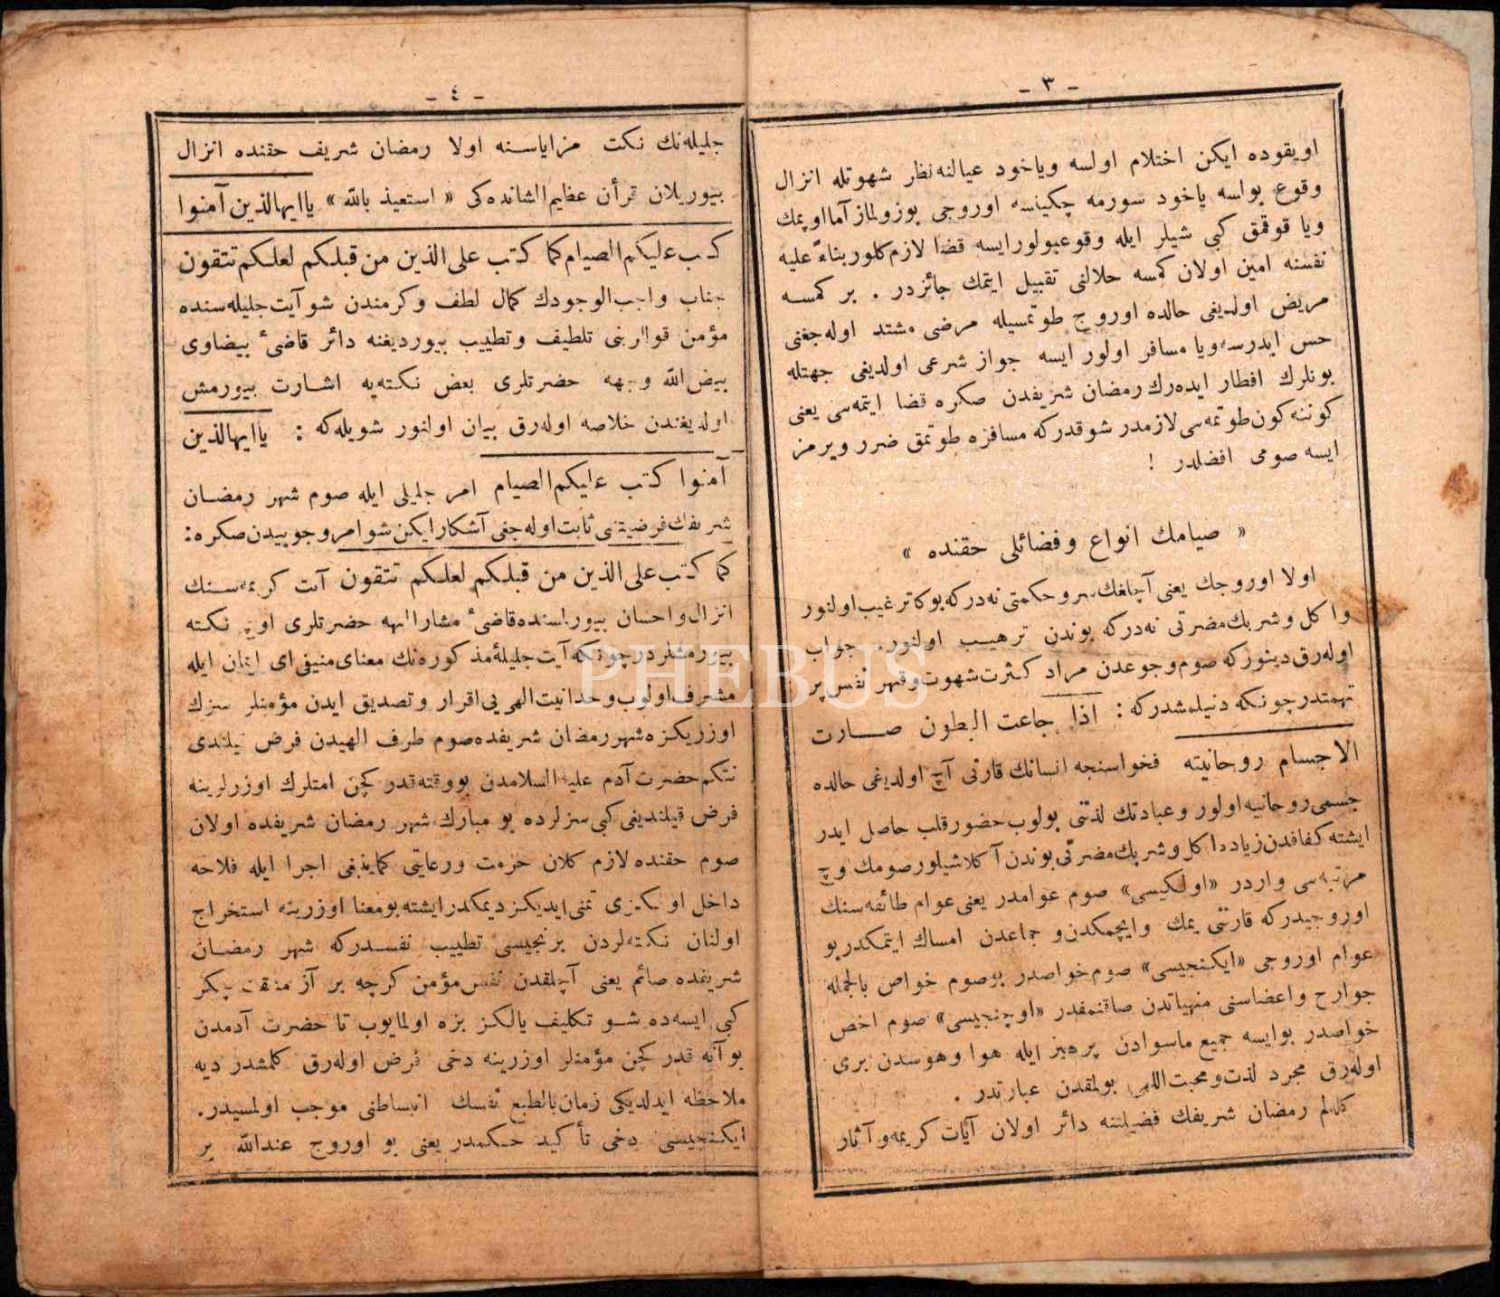 - ٣ -
اويقوده ايكن احتلام اولسه وياخود عيالنه نظر شهوتله انزال
وقوع بولسه ياخود سورمه چكينسه اوروجى بوزولماز آما اوپمك
ويا قوقمق كبى شيلر ايله وقوعبولورايسه قضا لازم كلور بناءً عليه
نفسنه امين اولان كمسه حلالنى تقبيل ايتمك جائزدر . بر كمسه
مريض اولديغى حالده اوروج طوتمسيله مرضى مشتد اوله جغنى
حس ايدرسه ويا مسافر اولور ايسه جواز شرعى اولديغى جهتله
بونلرك افطار ايده رك رمضان شريفدن صكره قضا ايتمه سى يعنى
كوننه كون طوتمه سى لازمدر شوقدركه مسافره طوتمق ضرر ويرمز
ايسه صومى افضلدر !
« صيامك انواع وفضائلى حقنده »
اولا اوروجك يعنى آچلغك سر وحكمتى نه دركه بوكا ترغيب اولنور
واكل وشربك مضرتى نه دركه بوندن ترهيب اولنور . جواب
اوله رق دينوركه صوم وجوعدن مراد كثرت شهوت وقهر نفس پر
تهمتدر چونكه دنيلمشدركه : اذا جاعت البطون صارت
الاجسام روحانيته فحواسنجه انسانك قارنى آچ اولديغى حالده
جسمى روحانيه اولور وعبادتك لذتنى بولوب حضور قلب حاصل ايدر
ايشته كفافدن زياده اكل وشربك مضرتى بوندن آكلاشيلور صومك اوچ
مرتبه سى واردر «اولكيسى» صوم عوامدر يعنى عوام طائفه سنك
اوروجيدركه قارننى يمك وايچمكدن و جماعدن امساك ايتمكدر بو
عوام اوروجى «ايكنجيسى» صوم خواصدر بو صوم خواص بالجمله
جوارح واعضاسنى منهياتدن صاقنمقدر «اوچنجيسى» صوم اخص
خواصدر بوايسه جميع ماسوادن پرهيز ايله هوا وهوسدن برى
اوله رق مجرد لذت ومحبت اللهى بولمقدن عبارتدر .
كله لم رمضان شريفك فضيلتنه دائر اولان آيات كريمه وآثار
- ٤ -
جليله نك نكت مزاياسنه اولا رمضان شريف حقنده انزال
بيوريلان قرآن عظيم الشانده كى « استعيذ بالله » ياايهاالذين آمنوا
كتب عليكم الصيام كما كتب على الذين من قبلكم لعلكم تتقون
جناب واجب الوجودك كمال لطف وكرمندن شو آيت جليله سنده
مؤمن قوللرينى تلطيف وتطييب بيورديغنه دائر قاضىٔ بيضاوى
بيض الله وجهه حضرتلرى بعض نكته يه اشارت بيورمش
اولديغندن خلاصه اوله رق بيان اولنور شويله كه : ياايهاالذين
آمنوا كتب عليكم الصيام امر جليلى ايله صوم شهر رمضان
شريفك فرضيتى ثابت اوله جغى آشكار ايكن شو امر وجوبيدن صكره :
كما كتب على الذين من قبلكم لعلكم تتقون آيت كريمه سنك
انزال واحسان بيورلسنده قاضىٔ مشاراليه حضرتلرى اوچ نكته
بيورمشلردر چونكه آيت جليلۀ مذكوره نك معناى منيفى اى ايمان ايله
مشرف اولوب وحدانيت الهى يى اقرار وتصديق ايدن مؤمنلر سزك
اوزريكزه شهر رمضان شريفده صوم طرف الهيدن فرض قيلندى
نتكم حضرت آدم عليه السلامدن بووقته قدر كچن امتلرك اوزرلرينه
فرض قيلنديغى كبى سزلرده بو مبارك شهر رمضان شريفده اولان
صوم حقنده لازم كلان حرمت ورعايتى كماينبغى اجرا ايله فلاحه
داخل اولمكزى تمنى ايديكز ديمكدر ايشته بو معنا اوزرينه استخراج
اولنان نكته لردن برنجيسى تطييب نفسدركه شهر رمضان
شريفده صائم يعنى آچلقدن نفس مؤمن كرچه بر آز مشقت چكر
كبى ايسه ده شو تكليف يالكز بزه اولمايوب تا حضرت آدمدن
بو آنه قدر كچن مؤمنلر اوزرينه دخى فرض اوله رق كلمشدر ديه
ملاحظه ايدلديكى زمان بالطبع نفسك انبساطنى موجب اولمسيدر.
ايكنجيسى دخى تأكيد حكمدر يعنى بو اوروج عندالله بر
PHEBUS